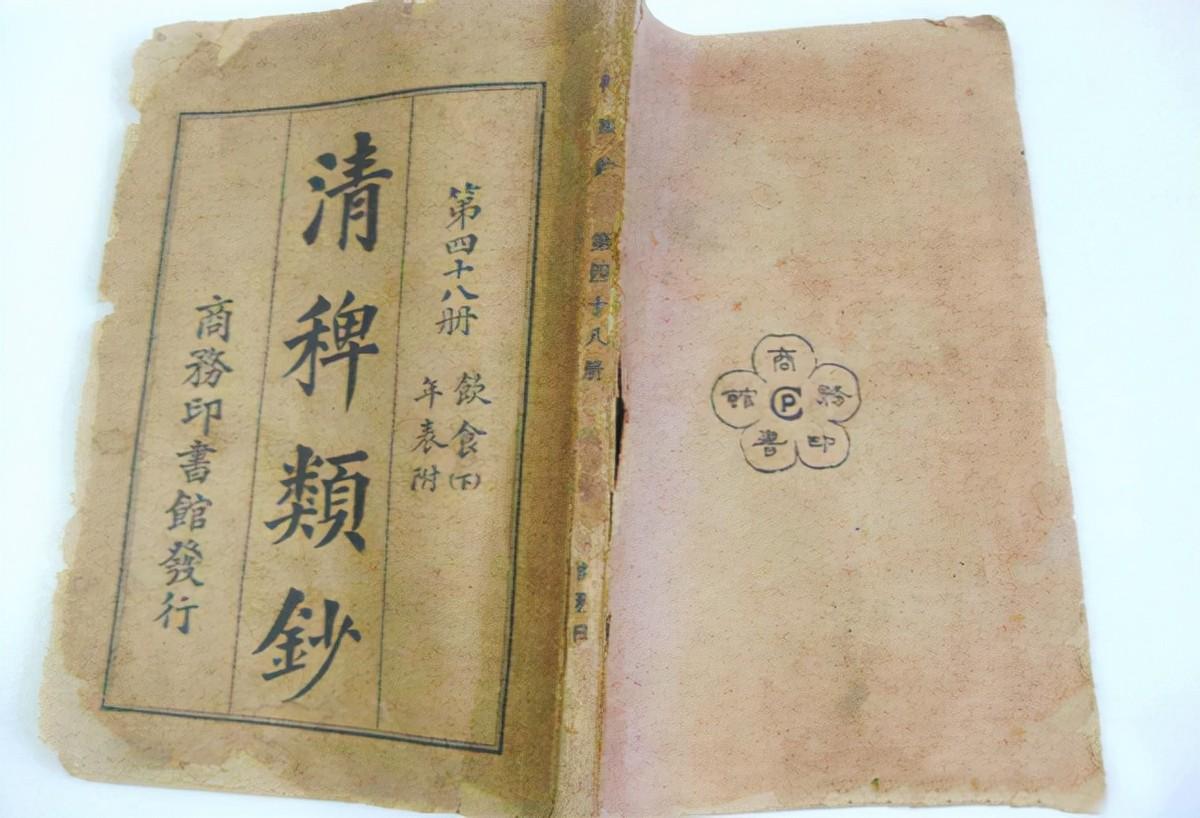 第四十八册
飲食(下)
年表附
清稗類鈔
商務印書館發行
第四十八册
商務印書館
CP